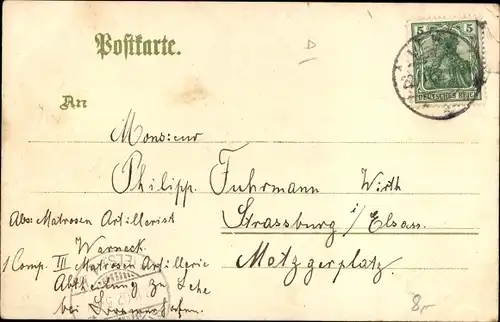 Postkarte.
5
DEUTSCHES REICH
An
Monsieur
Philipp. Fuhrmann Wirth
Strassburg i/Elsass.
Metzgerplatz.
Abs: Matrosen Artillerist
Warneck.
1 Comp. III Matrosen Artillerie
Abtheilung zu Lehe
bei
8,-